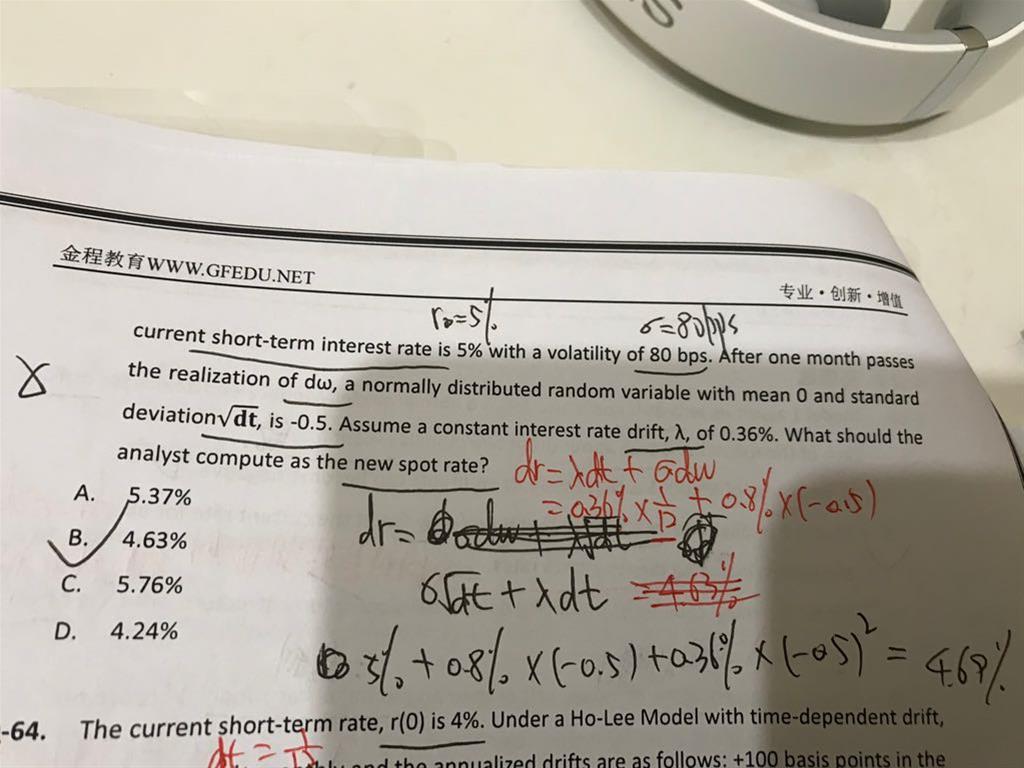 金程教育WWW.GFEDU.NET
专业·创新·增值
r₀=5% σ=80bps
current short-term interest rate is 5% with a volatility of 80 bps. After one month passes
the realization of dω, a normally distributed random variable with mean 0 and standard
deviation√dt, is -0.5. Assume a constant interest rate drift, λ, of 0.36%. What should the
analyst compute as the new spot rate?
dr=λdt+σdw
=0.36%×1/12+0.8%×(-0.5)
A. 5.37%
B. 4.63%
C. 5.76%
D. 4.24%
dr=
σ√dt+λdt =4.63%
5%+0.8%×(-0.5)+0.36%×(-0.5)²=4.69%
-64. The current short-term rate, r(0) is 4%. Under a Ho-Lee Model with time-dependent drift,
dt=1/12
and the annualized drifts are as follows: +100 basis points in the